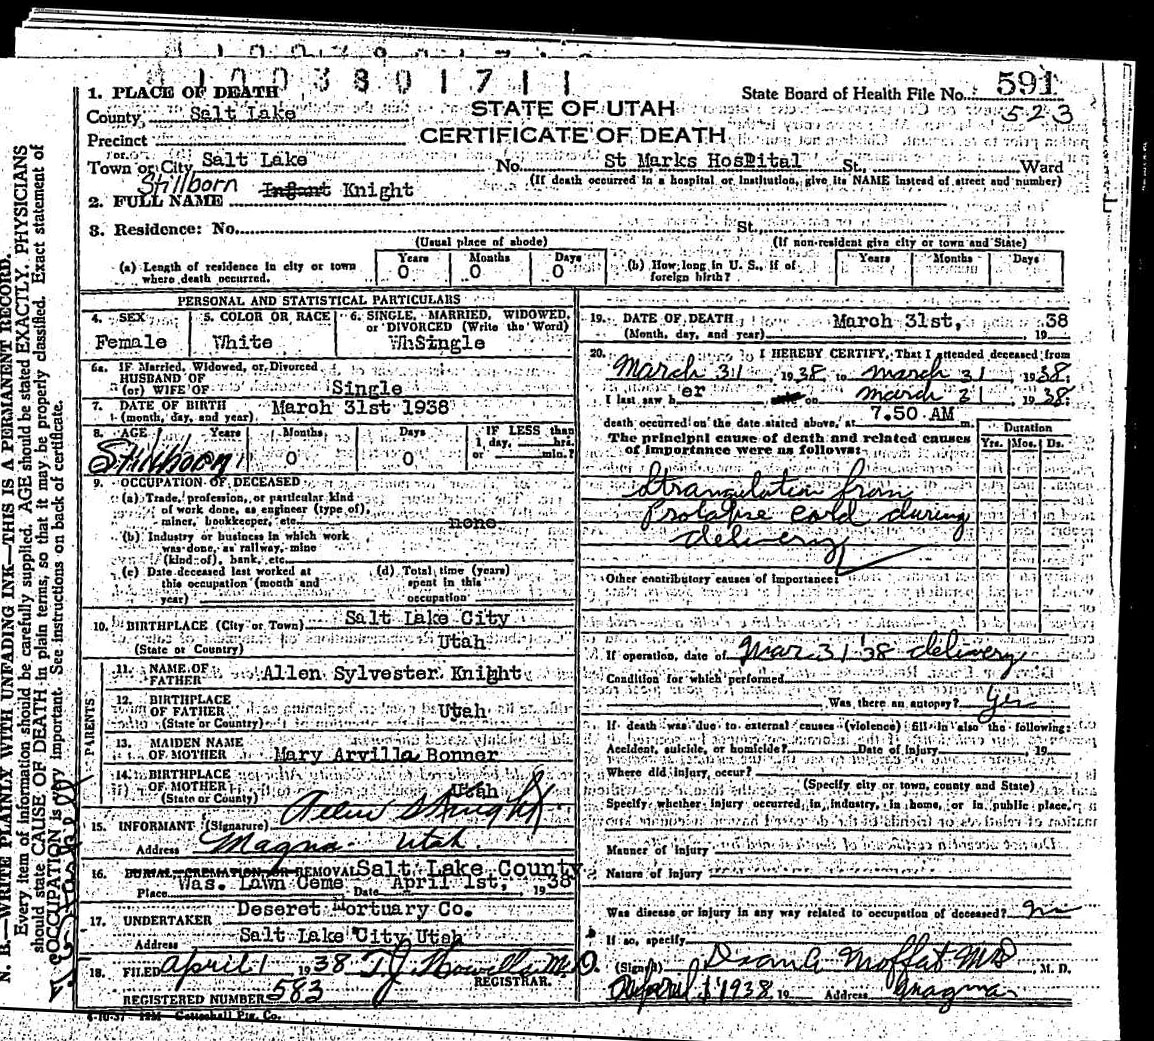 1003801711
1. PLACE OF DEATH
State Board of Health File No. 591
County, Salt Lake
STATE OF UTAH
523
Precinct
CERTIFICATE OF DEATH
or
Town or City Salt Lake No. St Marks Hospital St. Ward
(If death occurred in a hospital or institution, give its NAME instead of street and number)
Stillborn Infant Knight
2. FULL NAME
3. Residence: No. St.
(Usual place of abode) (If non-resident give city or town and State)
(a) Length of residence in city or town where death occurred. Years 0 Months 0 Days 0 (b) How long in U. S., if of foreign birth? Years Months Days
PERSONAL AND STATISTICAL PARTICULARS
4. SEX 5. COLOR OR RACE 6. SINGLE, MARRIED, WIDOWED,
or DIVORCED (Write the Word)
Female White WhSingle
6a. IF Married, Widowed, or Divorced
HUSBAND OF
(or) WIFE OF Single
7. DATE OF BIRTH March 31st 1938
(month, day, and year)
8. AGE Years Months Days IF LESS than
1 day, hrs.
or min.?
Stillborn 0 0
9. OCCUPATION OF DECEASED
(a) Trade, profession, or particular kind
of work done, as engineer (type of),
miner, bookkeeper, etc. none
(b) Industry or business in which work
was done, as railway, mine
(kind of), bank, etc.
(c) Date deceased last worked at
this occupation (month and
year)
(d) Total time (years)
spent in this
occupation
10. BIRTHPLACE (City or Town) Salt Lake City
(State or Country) Utah
PARENTS
11. NAME OF
FATHER Allen Sylvester Knight
12. BIRTHPLACE
OF FATHER Utah
(State or Country)
13. MAIDEN NAME
OF MOTHER Mary Arvilla Bonner
14. BIRTHPLACE
OF MOTHER Utah
(State or County)
15. INFORMANT (Signature) Allen S Knight
Address Magna Utah
16. BURIAL, CREMATION, OR REMOVAL Salt Lake County
Place Was. Lawn Ceme Date April 1st, 1938
17. UNDERTAKER Deseret Mortuary Co.
Address Salt Lake City Utah
18. FILED April 1 1938 T J Howells M.D.
REGISTRAR.
REGISTERED NUMBER 583
4-10-37 Gottschall Ptg. Co.
19. DATE OF DEATH March 31st, 38
(Month, day, and year) , 19
20. I HEREBY CERTIFY, That I attended deceased from
March 31 1938 to March 31 1938.
I last saw h er on March 31 1938.
death occurred on the date stated above, at 7.50 AM m.
The principal cause of death and related causes
of importance were as follows:
Duration
Yrs. Mos. Ds.
Strangulation from
Prolapse cord during
delivery
Other contributory causes of importance:
If operation, date of Mar 31 '38 delivery
Condition for which performed
Was there an autopsy? Yes
If death was due to external causes (violence) fill in also the following:
Accident, suicide, or homicide? Date of injury 19
Where did injury occur?
(Specify city or town, county and State)
Specify whether injury occurred in industry, in home, or in public place.
Manner of injury
Nature of injury
Was disease or injury in any way related to occupation of deceased? no
If so, specify
(Signed) Dean A Moffat MD, M. D.
April 1 1938 19 Address Magna
N. B.—WRITE PLAINLY WITH UNFADING INK—THIS IS A PERMANENT RECORD.
Every item of information should be carefully supplied. AGE should be stated EXACTLY. PHYSICIANS
should state CAUSE OF DEATH in plain terms, so that it may be properly classified. Exact statement of
OCCUPATION is very important. See instructions on back of certificate.